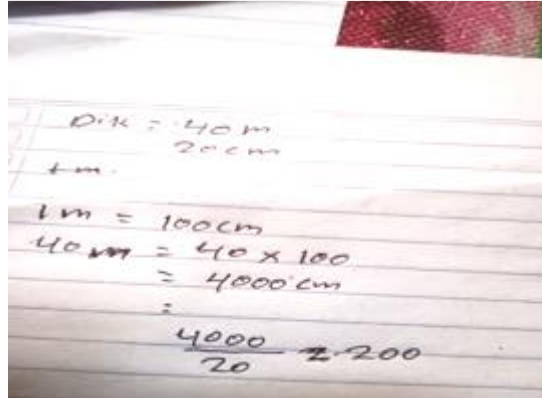 Dik = 40 m
20 cm
1 m
1 m = 100 cm
40 m = 40 x 100
= 4000 cm
=
4000
20
= 200